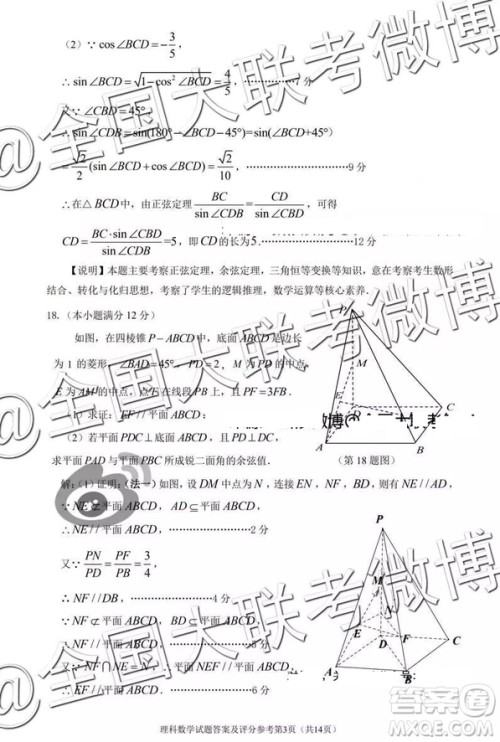 （2）∵ cos∠BCD=−3/5
∴ sin∠BCD=√(1−cos²∠BCD)=4/5，……………7分
又∵∠CBD=45°，
∴ sin∠CDB=sin(180°−∠BCD−45°)=sin(∠BCD+45°)
=√2/2(sin∠BCD+cos∠BCD)=√2/10，……………………………9分
∴在△BCD中，由正弦定理 BC/sin∠CDB=CD/sin∠CBD，可得
CD=BC·sin∠CBD/sin∠CDB=5，即CD的长为5.……………12分
【说明】本题主要考察正弦定理，余弦定理，三角恒等变换等知识，意在考察考生数形
结合、转化与化归思想，考察了学生的逻辑推理，数学运算等核心素养.
18.（本小题满分12分）
如图，在四棱锥P−ABCD中，底面ABCD是边长
为1的菱形，∠BAD=45°，PD=2，M为PD的中点，
E为AM的中点，点F在线段PB上，且PF=3FB.
（1）求证：EF//平面ABCD；
（2）若平面PDC⊥底面ABCD，且PD⊥DC，
求平面PAD与平面PBC所成锐二面角的余弦值.
P
M
E
D
C
A
B
（第18题图）
解：（1）证明：（法一）如图，设DM中点为N，连接EN，NF，BD，则有NE//AD，
∵NE⊄平面ABCD，AD⊆平面ABCD，
∴NE//平面ABCD.……………2分
又∵PN/PD=PF/PB=3/4
∴NF//DB，……………4分
∵NF⊄平面ABCD，BD⊆平面ABCD，
∴NF//平面ABCD.
又∵NF∩NE=N，∴平面NEF//平面ABCD，
……………6分
P
M
N
E
D
F
C
A
B
理科数学试题答案及评分参考第3页（共14页）
@全国大联考微博
@全国大联考微博
@全国大联考微博
答案圈